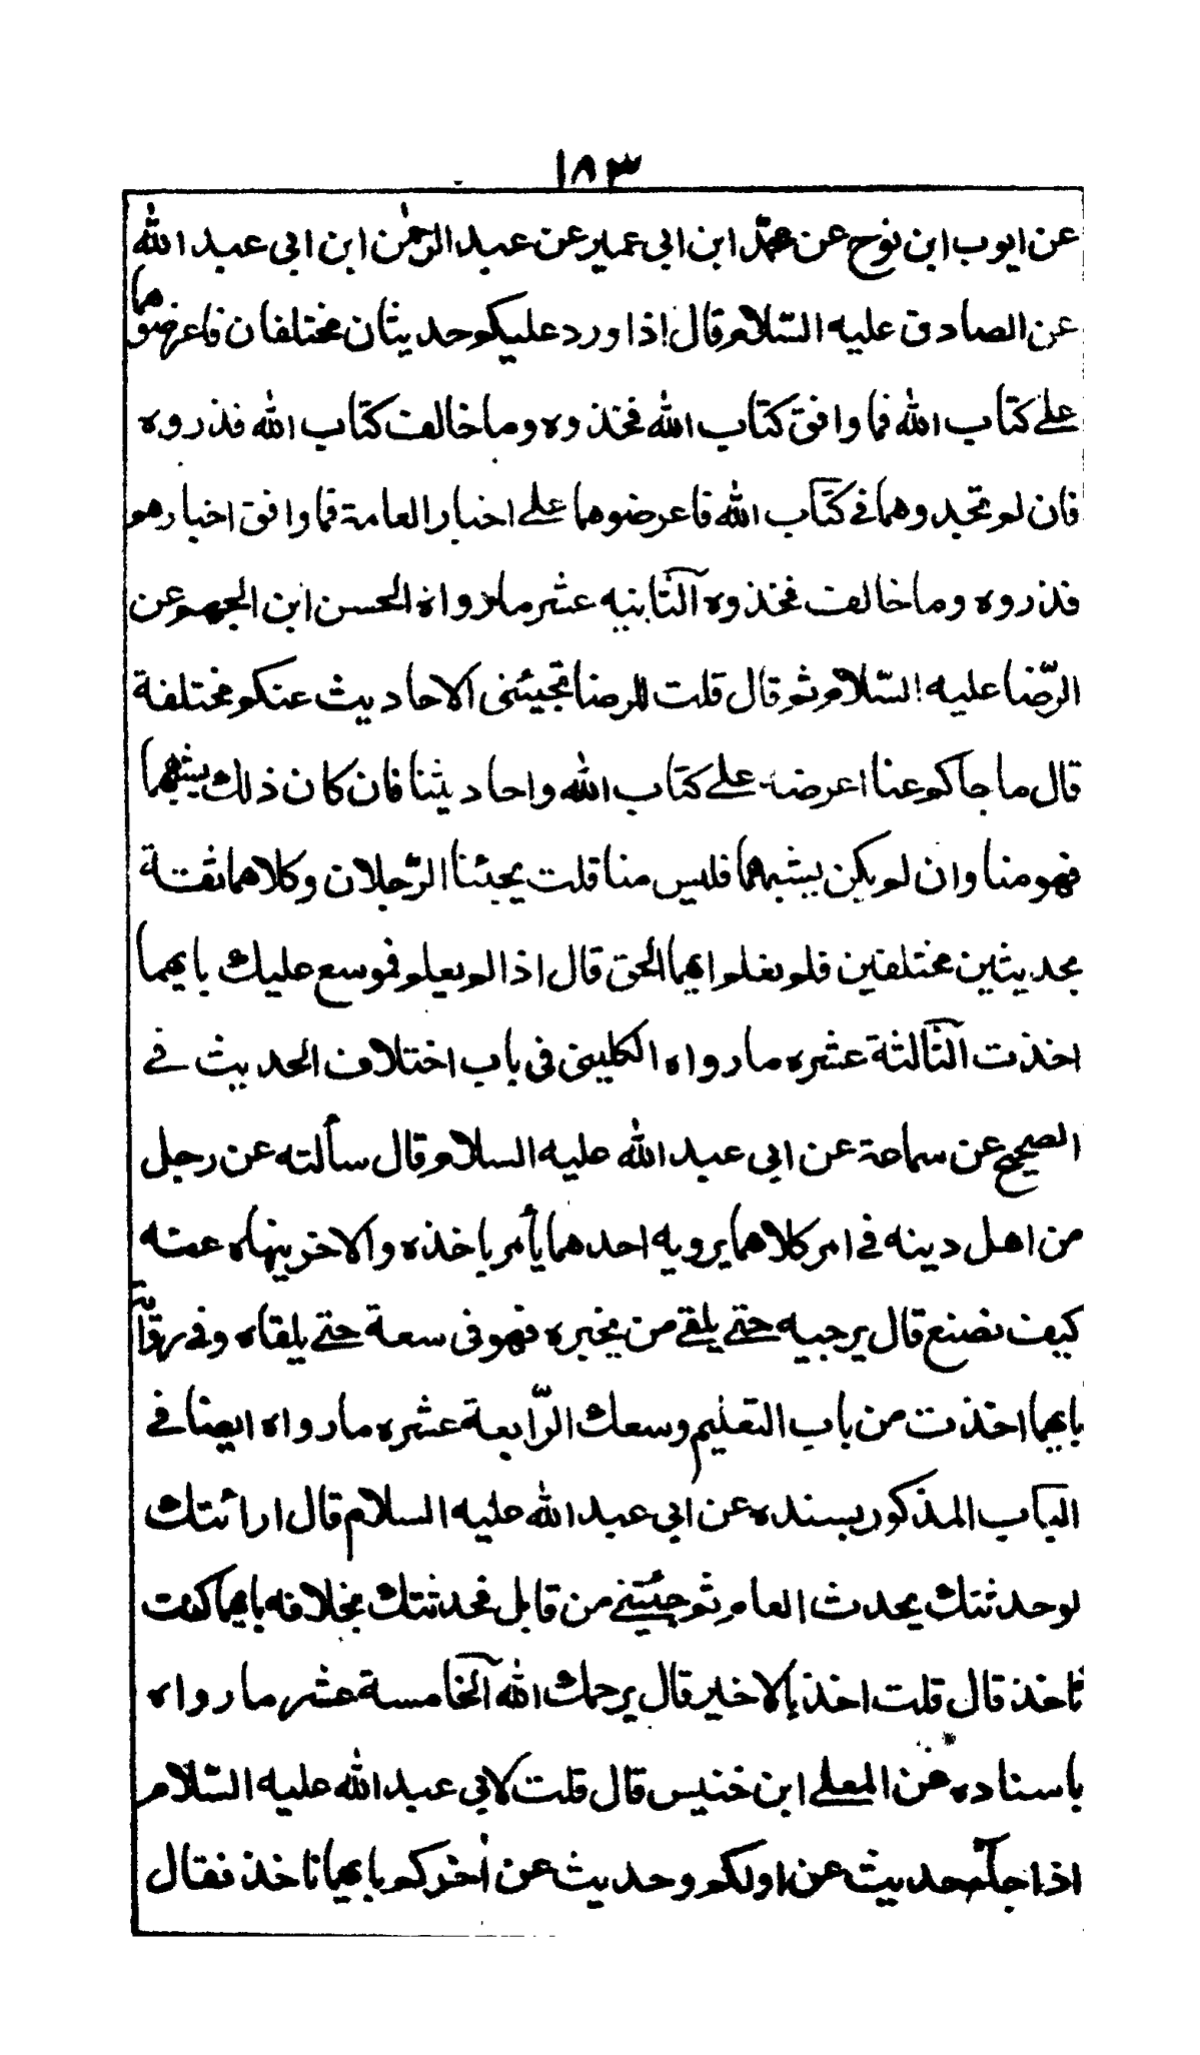 ١٨٣
عن ايوب ابن نوح عن محمّد ابن ابي عمير عن عبد الرحمٰن ابن ابي عبد الله
عن الصادق عليه السّلام قال اذا ورد عليكم حديثان مختلفان فاعرضوهما
على كتاب الله فما وافق كتاب الله فخذوه وما خالف كتاب الله فذروه
فان لم تجدوهما في كتاب الله فاعرضوهما على اخبار العامة فما وافق اخبارهم
فذروه وما خالف فخذوه الثانيه عشر ما رواه الحسن ابن الجهم عن
الرّضا عليه السّلام ثم قال قلت للرضا تجيئنى الاحاديث عنكم مختلفة
قال ما جاكم عنا اعرضه على كتاب الله واحاديثنا فان كان ذلك يشبهما
فهو منا وان لم يكن يشبهما فليس منا قلت يجيئنا الرّجلان وكلاهما ثقة
بحديثين مختلفين فلم نعلم ايهما الحق قال اذا لم يعلم فموسع عليك بايهما
اخذت الثالثة عشره ما رواه الكليني فى باب اختلاف الحديث في
الصحيح عن سماعة عن ابي عبد الله عليه السلام قال سألته عن رجل
من اهل دينه في امر كلاهما يرويه احدهما يأمر باخذه والاخر ينهاه عنه
كيف نصنع قال يرجيه حتى يلقى من يخبره فهو فى سعة حتى يلقاه وفي رواية
بايهما اخذت من باب التعليم وسعك الرّابعة عشره ما رواه ايضا في
الباب المذكور بسنده عن ابي عبد الله عليه السلام قال ارائتك
لو حدثتك بحدث العام ثم جئتني من قابل فحدثتك بخلافه بايهما كنت
تاخذ قال قلت اخذ بالاخير قال يرحمك الله الخامسة عشر ما رواه
باسناده عن المعلى ابن خنيس قال قلت لابي عبد الله عليه السّلام
اذا جاكم حديث عن اولكم وحديث عن اٰخركم بايهما ناخذ فقال